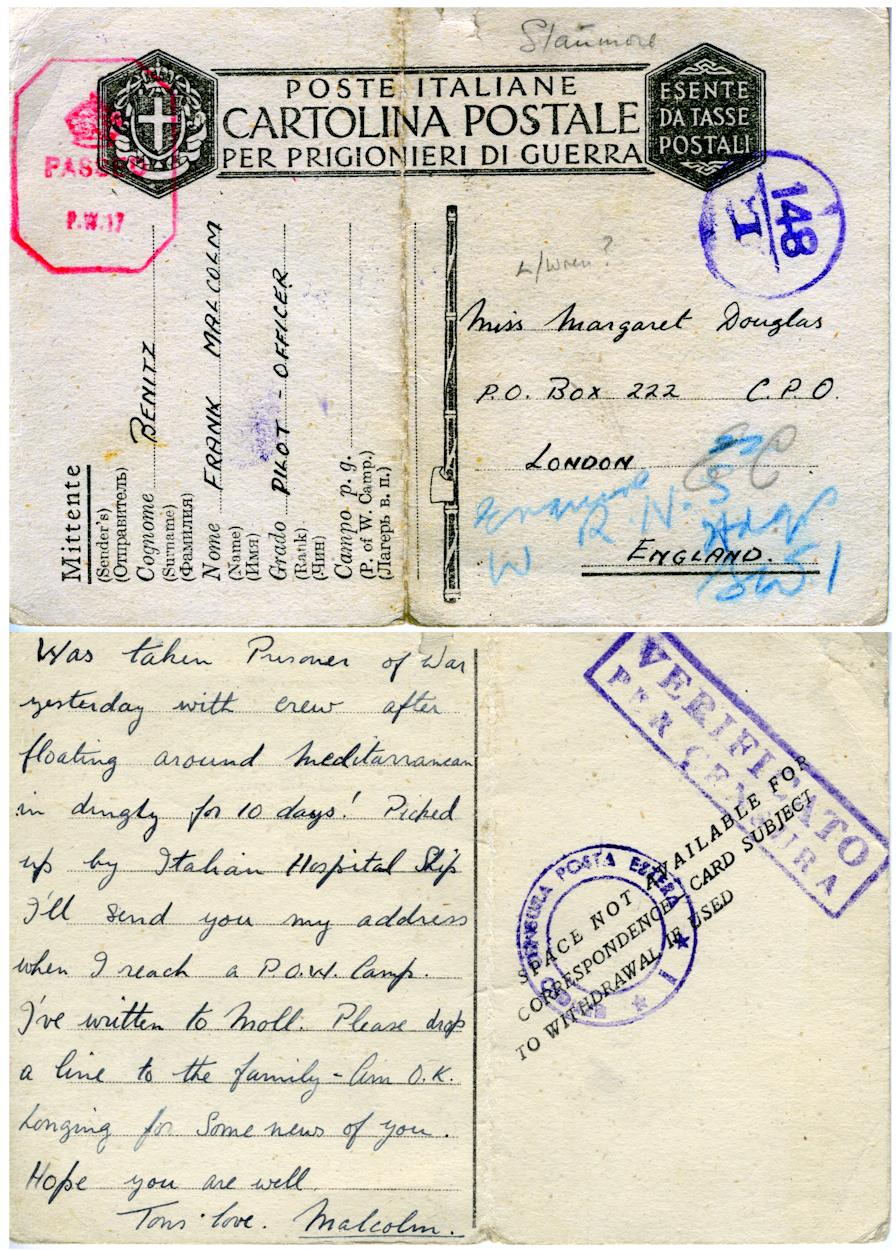 Stanmore
POSTE ITALIANE
CARTOLINA POSTALE
PER PRIGIONIERI DI GUERRA
ESENTE
DA TASSE
POSTALI
PASSED
P.W.17
148
I
Mittente
(Sender's)
(Отправитель)
Cognome BENITZ
(Surname)
(Фамилия)
Nome FRANK MALCOLM
(Name)
(Имя)
Grado PILOT - OFFICER
(Rank)
(Чин)
Campo p. g.
(P. of W. Camp.)
(Лагерь в. п.)
L/Wren?
Miss Margaret Douglas
P.O. BOX 222 C.P.O.
LONDON
ENGLAND.
W R.N.S
Hdqs
SW1
Was taken Prisoner of War
yesterday with crew after
floating around Meditarranean
in dinghy for 10 days! Picked
up by Italian Hospital Ship
I'll send you my address
when I reach a P.O.W. Camp.
I've written to Moll. Please drop
a line to the family - Am O.K.
Longing for some news of you.
Hope you are well.
Tons love. Malcolm.
VERIFICATO
PER CENSURA
CENSURA POSTA ESTERA
SPACE NOT AVAILABLE FOR
CORRESPONDENCE - CARD SUBJECT
TO WITHDRAWAL IF USED